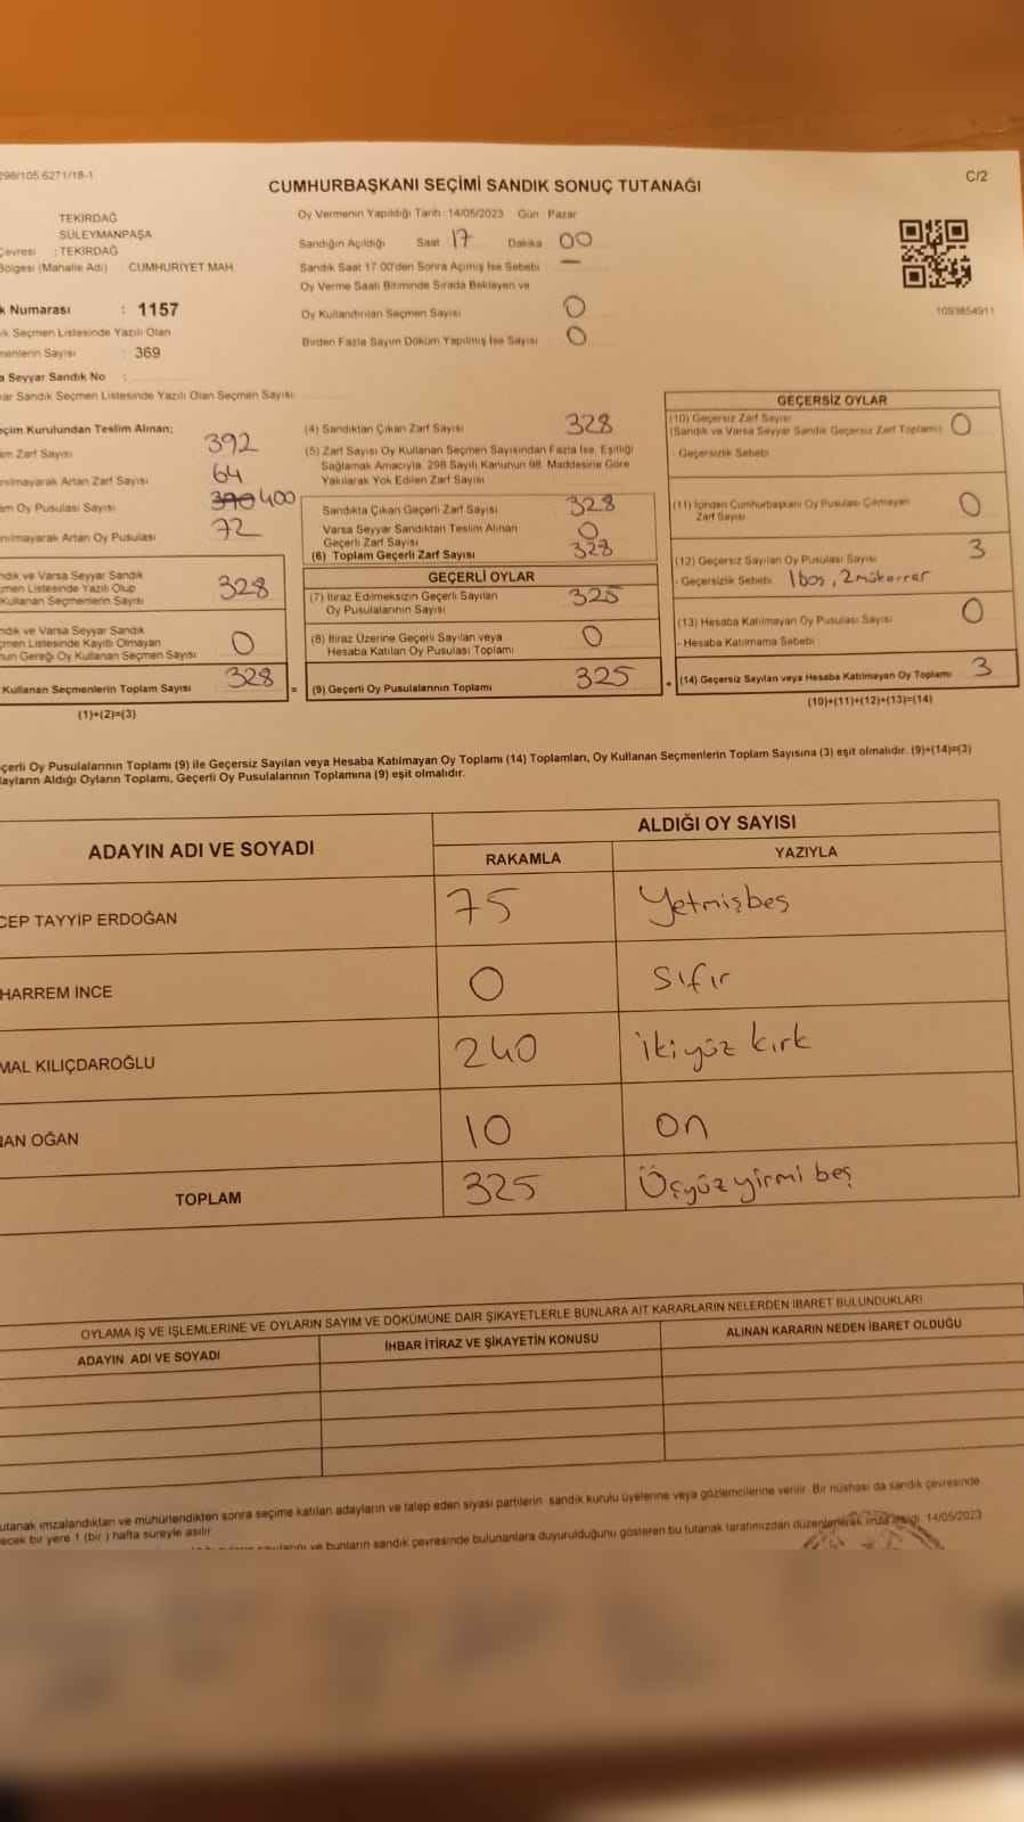 298/105.6271/18-1
C/2
CUMHURBAŞKANI SEÇİMİ SANDIK SONUÇ TUTANAĞI
TEKİRDAĞ
SÜLEYMANPAŞA
Çevresi : TEKİRDAĞ
Bölgesi (Mahalle Adı) CUMHURİYET MAH.
k Numarası : 1157
k Seçmen Listesinde Yazılı Olan
menlerin Sayısı : 369
a Seyyar Sandık No :
ar Sandık Seçmen Listesinde Yazılı Olan Seçmen Sayısı
Oy Vermenin Yapıldığı Tarih :14/05/2023 Gün Pazar
Sandığın Açıldığı Saat 17 Dakika 00
Sandık Saat 17.00'den Sonra Açılmış İse Sebebi —
Oy Verme Saati Bitiminde Sırada Bekleyen ve
Oy Kullandırılan Seçmen Sayısı 0
Birden Fazla Sayım Döküm Yapılmış İse Sayısı 0
1093854911
çim Kurulundan Teslim Alınan;
am Zarf Sayısı 392
nılmayarak Artan Zarf Sayısı 64
am Oy Pusulası Sayısı 390 400
nılmayarak Artan Oy Pusulası 72
ndık ve Varsa Seyyar Sandık
çmen Listesinde Yazılı Olup
Kullanan Seçmenlerin Sayısı 328
ndık ve Varsa Seyyar Sandık
çmen Listesinde Kayıtlı Olmayan
nun Gereği Oy Kullanan Seçmen Sayısı 0
Kullanan Seçmenlerin Toplam Sayısı 328
(1)+(2)=(3)
(4) Sandıktan Çıkan Zarf Sayısı 328
(5) Zarf Sayısı Oy Kullanan Seçmen Sayısından Fazla İse, Eşitliği
Sağlamak Amacıyla, 298 Sayılı Kanunun 98. Maddesine Göre
Yakılarak Yok Edilen Zarf Sayısı
Sandıkta Çıkan Geçerli Zarf Sayısı 328
Varsa Seyyar Sandıktan Teslim Alınan
Geçerli Zarf Sayısı 0
(6) Toplam Geçerli Zarf Sayısı 328
GEÇERLİ OYLAR
(7) İtiraz Edilmeksizin Geçerli Sayılan
Oy Pusulalarının Sayısı 325
(8) İtiraz Üzerine Geçerli Sayılan veya
Hesaba Katılan Oy Pusulası Toplamı 0
= (9) Geçerli Oy Pusulalarının Toplamı 325
GEÇERSİZ OYLAR
(10) Geçersiz Zarf Sayısı
(Sandık ve Varsa Seyyar Sandık Geçersiz Zarf Toplamı) 0
- Geçersizlik Sebebi
(11) İçinden Cumhurbaşkanı Oy Pusulası Çıkmayan
Zarf Sayısı 0
(12) Geçersiz Sayılan Oy Pusulası Sayısı 3
- Geçersizlik Sebebi 1 boş, 2 mükerrer
(13) Hesaba Katılmayan Oy Pusulası Sayısı 0
- Hesaba Katılmama Sebebi
+ (14) Geçersiz Sayılan veya Hesaba Katılmayan Oy Toplamı 3
(10)+(11)+(12)+(13)=(14)
çerli Oy Pusulalarının Toplamı (9) ile Geçersiz Sayılan veya Hesaba Katılmayan Oy Toplamı (14) Toplamları, Oy Kullanan Seçmenlerin Toplam Sayısına (3) eşit olmalıdır. (9)+(14)=(3)
layların Aldığı Oyların Toplamı, Geçerli Oy Pusulalarının Toplamına (9) eşit olmalıdır.
ADAYIN ADI VE SOYADI
ALDIĞI OY SAYISI
RAKAMLA YAZIYLA
CEP TAYYİP ERDOĞAN 75 Yetmişbeş
HARREM İNCE 0 Sıfır
MAL KILIÇDAROĞLU 240 ikiyüz kırk
NAN OĞAN 10 on
TOPLAM 325 Üçyüz yirmi beş
OYLAMA İŞ VE İŞLEMLERİNE VE OYLARIN SAYIM VE DÖKÜMÜNE DAİR ŞİKAYETLERLE BUNLARA AİT KARARLARIN NELERDEN İBARET BULUNDUKLARI
ADAYIN ADI VE SOYADI
İHBAR İTİRAZ VE ŞİKAYETİN KONUSU
ALINAN KARARIN NEDEN İBARET OLDUĞU
utanak imzalandıktan ve mühürlendikten sonra seçime katılan adayların ve talep eden siyasi partilerin sandık kurulu üyelerine veya gözlemcilerine verilir. Bir nüshası da sandık çevresinde
ecek bir yere 1 (bir) hafta süreyle asılır.
ve bunların sandık çevresinde bulunanlara duyurulduğunu gösteren bu tutanak tarafımızdan düzenlenerek imza 14/05/2023